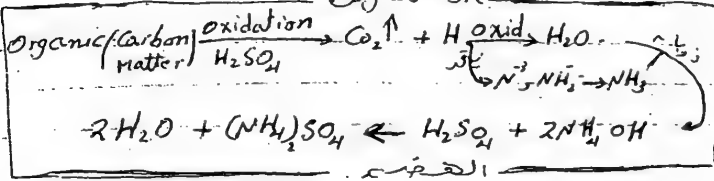 Organic (Carbon Matter) oxidation H₂SO₄ → CO₂↑ + H oxid → H₂O
N⁻³, NH₂⁻ → NH₃
2H₂O + (NH₄)₂SO₄ ← H₂SO₄ + 2NH₄OH
الهضم